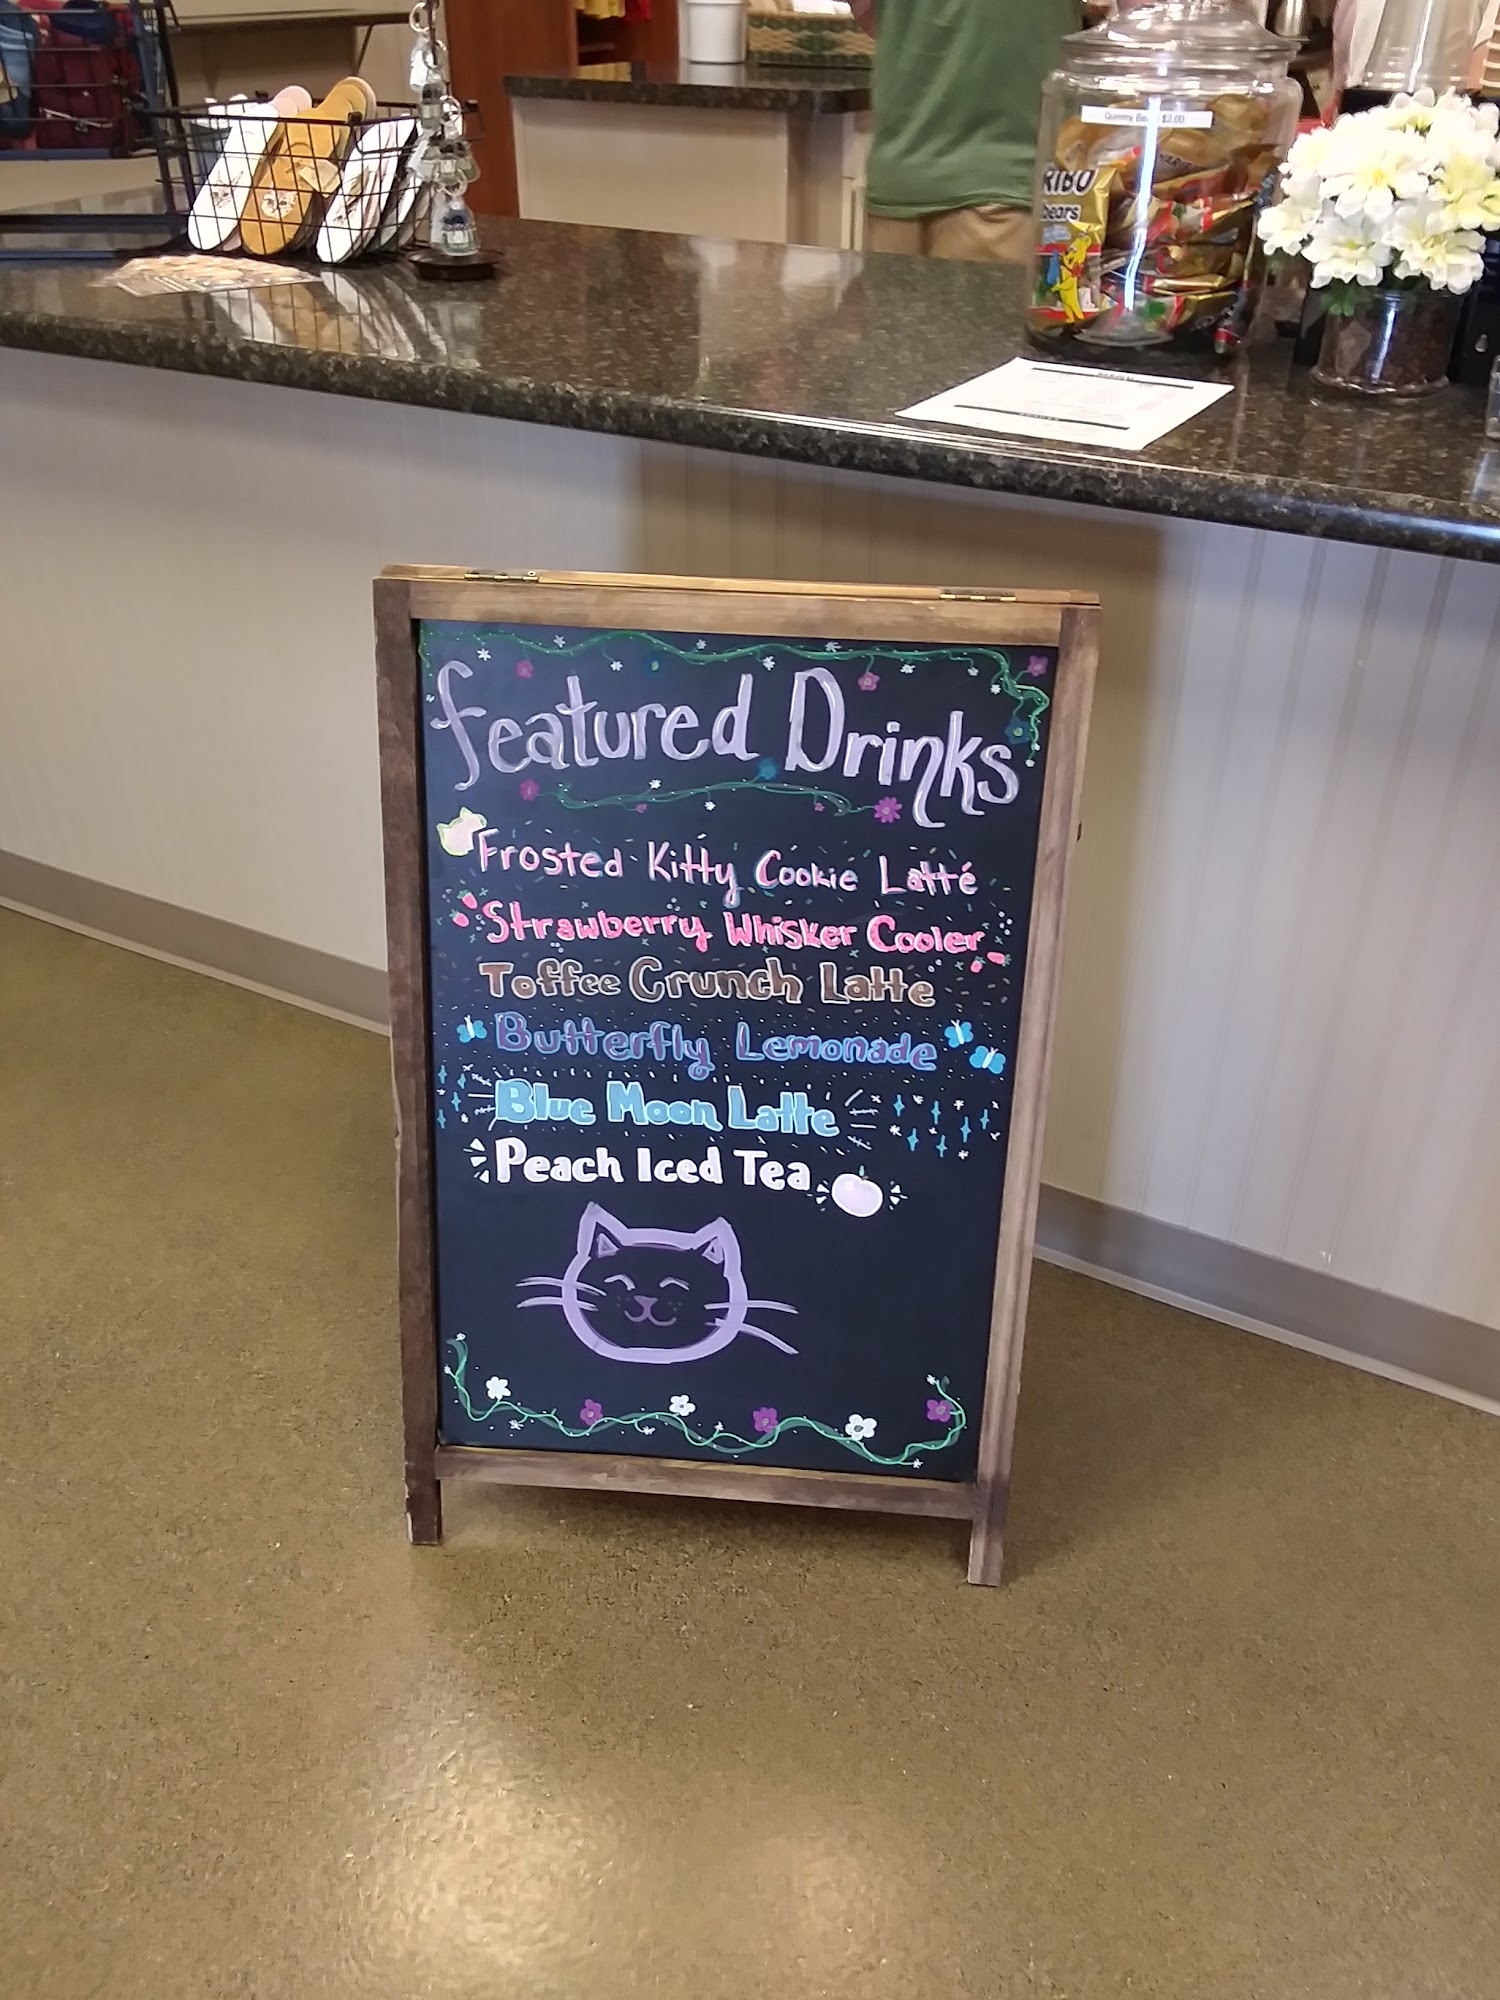 Gummy Bears $2.00
RIBO
bears
MENU
featured Drinks
Frosted Kitty Cookie Latté
Strawberry Whisker Cooler
Toffee Crunch Latte
Butterfly Lemonade
Blue Moon Latte
Peach Iced Tea